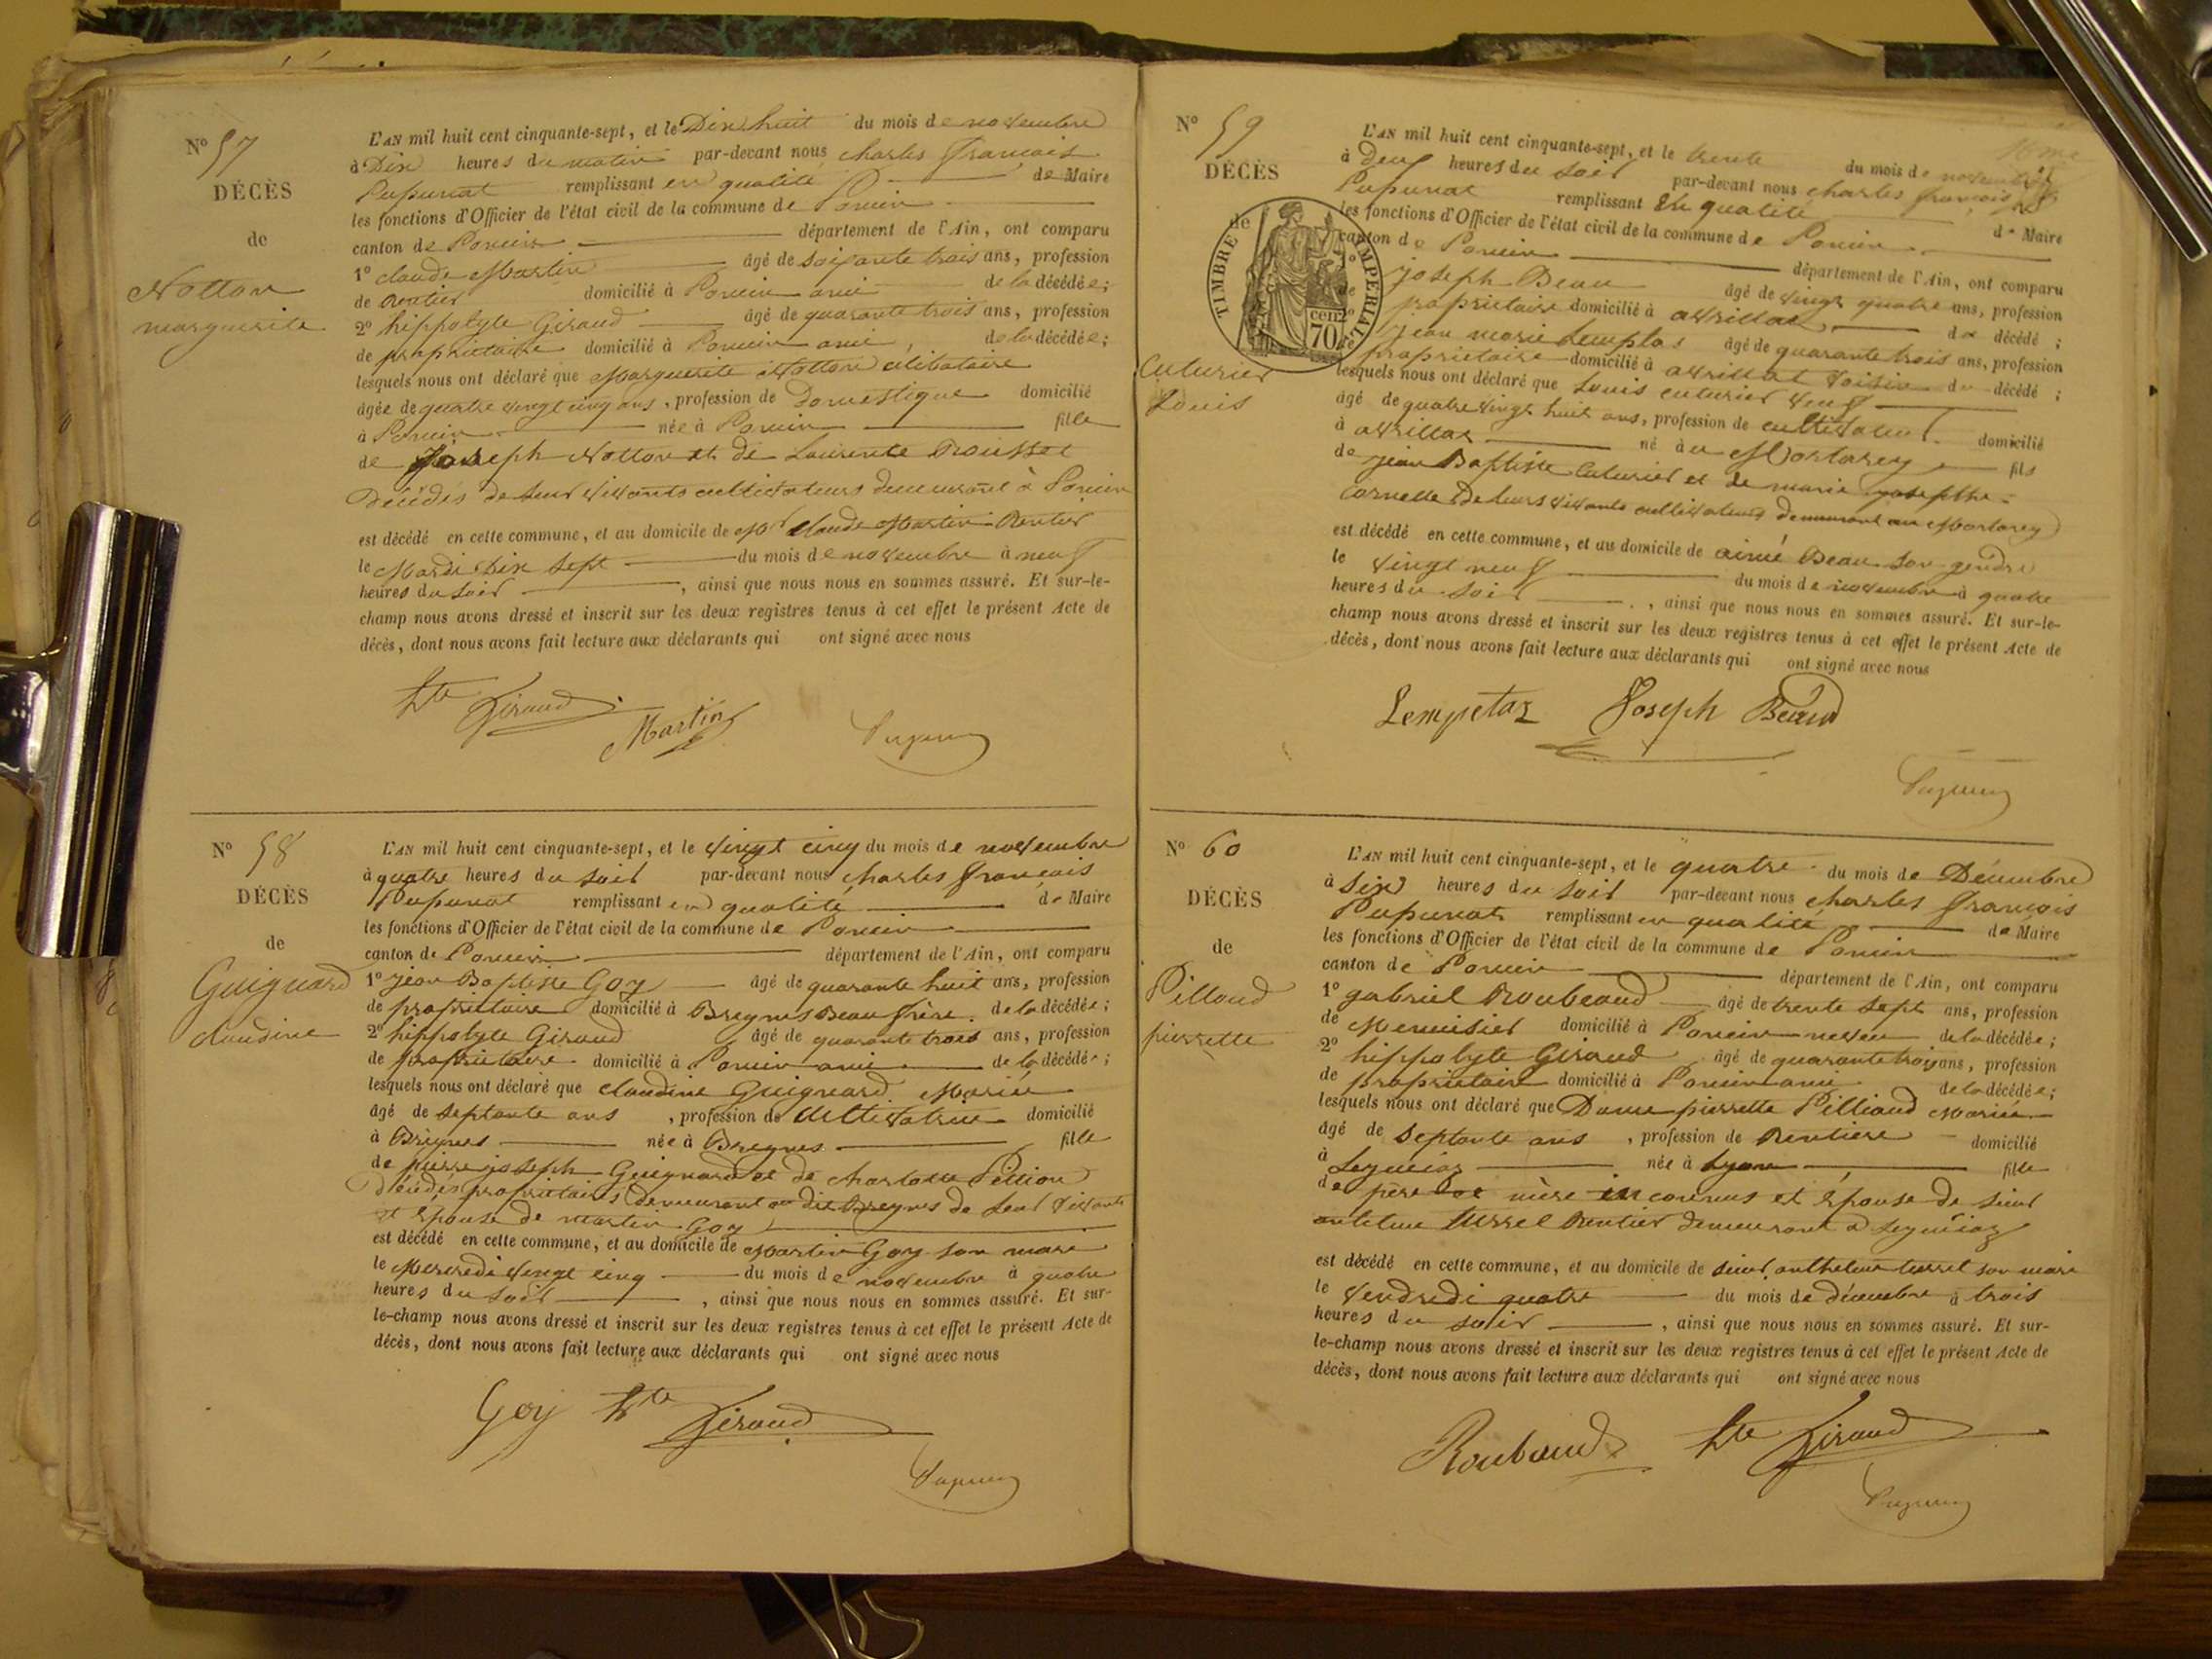 N° 57
DÉCÈS
de
Notton
marguerite
L'AN mil huit cent cinquante-sept, et le Dix huit du mois de novembre
à Dix heures du matin par-devant nous charles françois
Pupunat remplissant en qualité de Maire
les fonctions d'Officier de l'état civil de la commune de Poncin
canton de Poncin département de l'Ain, ont comparu
1° claude Martin âgé de soixante trois ans, profession
de Rentier domicilié à Poncin ami de la décédée;
2° hippolyte Giraud âgé de quarante trois ans, profession
de propriétaire domicilié à Poncin ami, de la décédée;
lesquels nous ont déclaré que Marguerite Notton célibataire
âgée de quatre vingt cinq ans, profession de Domestique domicilié
à Poncin née à Poncin fille
de Joseph Notton et de Laurence Trousset
Décédés de leur vivants cultivateurs demeurant à Poncin
est décédé en cette commune, et au domicile de Mr claude Martin Rentier
le Mardi Dix sept du mois de novembre à neuf
heures du soir, ainsi que nous nous en sommes assuré. Et sur-le-
champ nous avons dressé et inscrit sur les deux registres tenus à cet effet le présent Acte de
décès, dont nous avons fait lecture aux déclarants qui ont signé avec nous
hte Giraud Martin
N° 58
DÉCÈS
de
Guignard
claudine
L'AN mil huit cent cinquante-sept, et le vingt cinq du mois de novembre
à quatre heures du soir par-devant nous charles françois
Pupunat remplissant en qualité de Maire
les fonctions d'Officier de l'état civil de la commune de Poncin
canton de Poncin département de l'Ain, ont comparu
1° jean Baptiste Goy âgé de quarante huit ans, profession
de propriétaire domicilié à Breynes Beau frère de la décédée;
2° hippolyte Giraud âgé de quarante trois ans, profession
de propriétaire domicilié à Poncin ami de la décédée;
lesquels nous ont déclaré que claudine Guignard Mariée
âgé de septante ans, profession de cultivatrice domicilié
à Breynes née à Breynes fille
de pierre joseph Guignard et de charlotte Pition
Décédés propriétaires demeurant au dit Breynes de leur vivants
et épouse de martin Goy
est décédé en cette commune, et au domicile de Martin Goy son mari
le Mercredi vingt cinq du mois de novembre à quatre
heures du soir, ainsi que nous nous en sommes assuré. Et sur-
le-champ nous avons dressé et inscrit sur les deux registres tenus à cet effet le présent Acte de
décès, dont nous avons fait lecture aux déclarants qui ont signé avec nous
Goy hte Giraud
N° 59
DÉCÈS
de
TIMBRE IMPERIAL
70 cen
Cuturier
Louis
L'AN mil huit cent cinquante-sept, et le trente du mois de novembre
à deux heures du soir par-devant nous charles françois
Pupunat remplissant en qualité de Maire
les fonctions d'Officier de l'état civil de la commune de Poncin
canton de Poncin département de l'Ain, ont comparu
joseph Beau âgé de vingt quatre ans, profession
propriétaire domicilié à avrillat du décédé;
jean marie Lemplas âgé de quarante trois ans, profession
propriétaire domicilié à avrillat voisin du décédé;
lesquels nous ont déclaré que Louis cuturier veuf
âgé de quatre vingt huit ans, profession de cultivateur domicilié
à avrillat né au Mortarey fils
de jean Baptiste Cuturier et de marie josephte
Cornelle de leurs vivants cultivateurs demeurant au Mortarey
est décédé en cette commune, et au domicile de aimé Beau son gendre
le vingt neuf du mois de novembre à quatre
heures du soir, ainsi que nous nous en sommes assuré. Et sur-le-
champ nous avons dressé et inscrit sur les deux registres tenus à cet effet le présent Acte de
décès, dont nous avons fait lecture aux déclarants qui ont signé avec nous
Lempetaz Joseph Beaud
N° 60
DÉCÈS
de
Pilloud
pierrette
L'AN mil huit cent cinquante-sept, et le quatre du mois de Décembre
à six heures du soir par-devant nous charles françois
Pupunat remplissant en qualité de Maire
les fonctions d'Officier de l'état civil de la commune de Poncin
canton de Poncin département de l'Ain, ont comparu
1° gabriel Roubeaud âgé de trente sept ans, profession
de Menuisier domicilié à Poncin neveu de la décédée;
2° hippolyte Giraud âgé de quarante trois ans, profession
de propriétaire domicilié à Poncin ami de la décédée;
lesquels nous ont déclaré que Dame pierrette Pilliaud Mariée
âgé de septante ans, profession de Rentière domicilié
à Leymiaz née à Lyon fille
de père et mère inconnus et épouse de sieur
antelme Tersel Rentier demeurant à Leymiaz
est décédé en cette commune, et au domicile de sieur anthelme tersel son mari
le vendredi quatre du mois de décembre à trois
heures du soir, ainsi que nous nous en sommes assuré. Et sur-
le-champ nous avons dressé et inscrit sur les deux registres tenus à cet effet le présent Acte de
décès, dont nous avons fait lecture aux déclarants qui ont signé avec nous
Roubaud hte Giraud